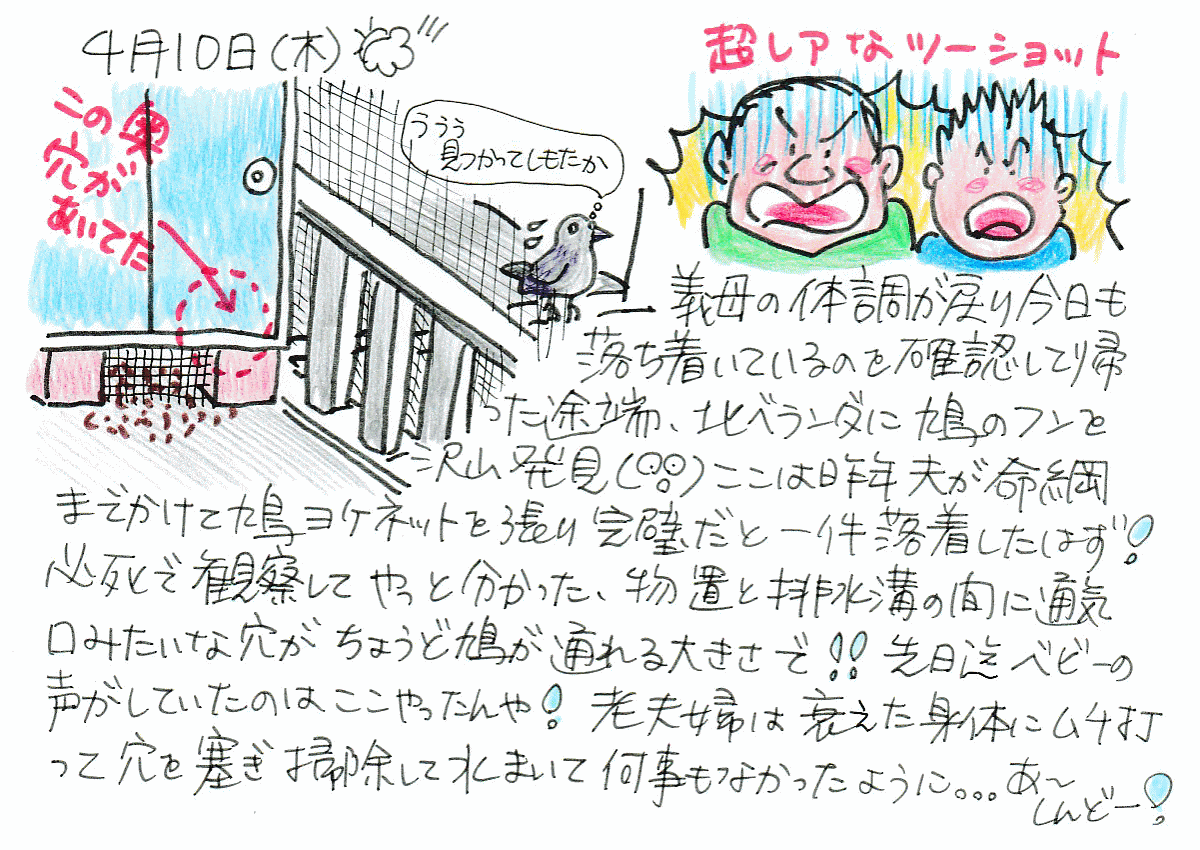 4月10日(木)
超レアなツーショット
この奥
穴が
あいてた
ううう
見つかってしもたか
義母の体調が戻り今日も
落ち着いているのを確認してり帰
った途端、北ベランダに鳩のフンを
沢山発見(??)ここは昨年夫が命綱
までかけて鳩ヨケネットを張り完璧だと一件落着したはず!
必死で観察してやっと分かった、物置と排水溝の間に通気
口みたいな穴がちょうど鳩が通れる大きさで!!先日迄ベビーの
声がしていたのはここやったんや!老夫婦は衰えた身体にムチ打
って穴を塞ぎ掃除して水まいて何事もなかったように。。。あ〜
しんどー!